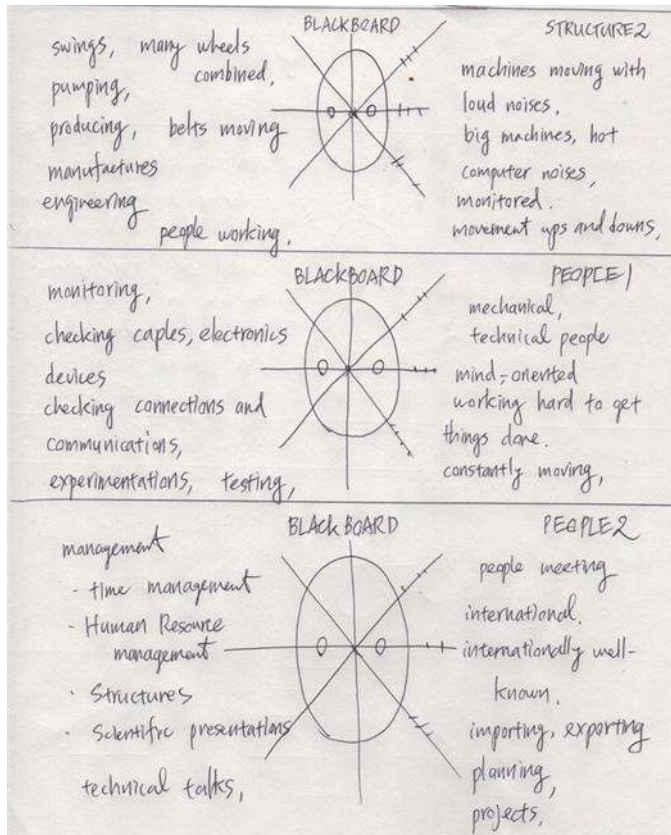 BLACKBOARD
STRUCTURE2
swings, many wheels
combined,
pumping,
producing, belts moving
manufactures
engineering
people working,
machines moving with
loud noises,
big machines, hot
computer noises,
monitored.
movement ups and downs,
BLACKBOARD
PEOPLE1
monitoring,
checking caples, electronics
devices
checking connections and
communications,
experimentations, testing,
mechanical,
technical people
mind-oriented
working hard to get
things done.
constantly moving,
BLACKBOARD
PEOPLE2
management
- time management
- Human Resource
management
· Structures
· Scientific presentations
technical talks,
people meeting
international.
internationally well-
known.
importing, exporting
planning,
projects,